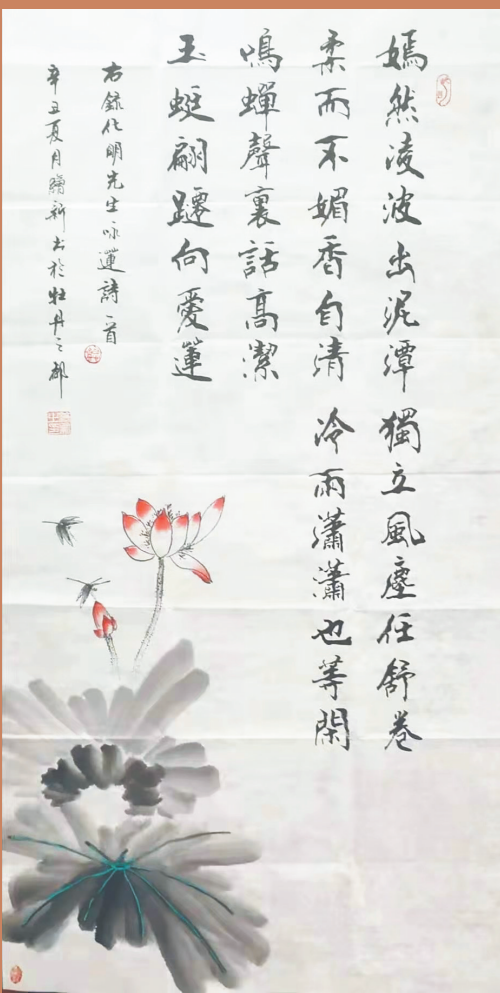 嫣然凌波出泥潭 獨立風塵任舒卷
柔而不媚香自清 冷雨瀟瀟也等閑
鳴蟬聲裏話高潔
玉蜓翩躚向愛蓮
右録化明先生咏蓮詩一首
辛丑夏月新书於牡丹之都